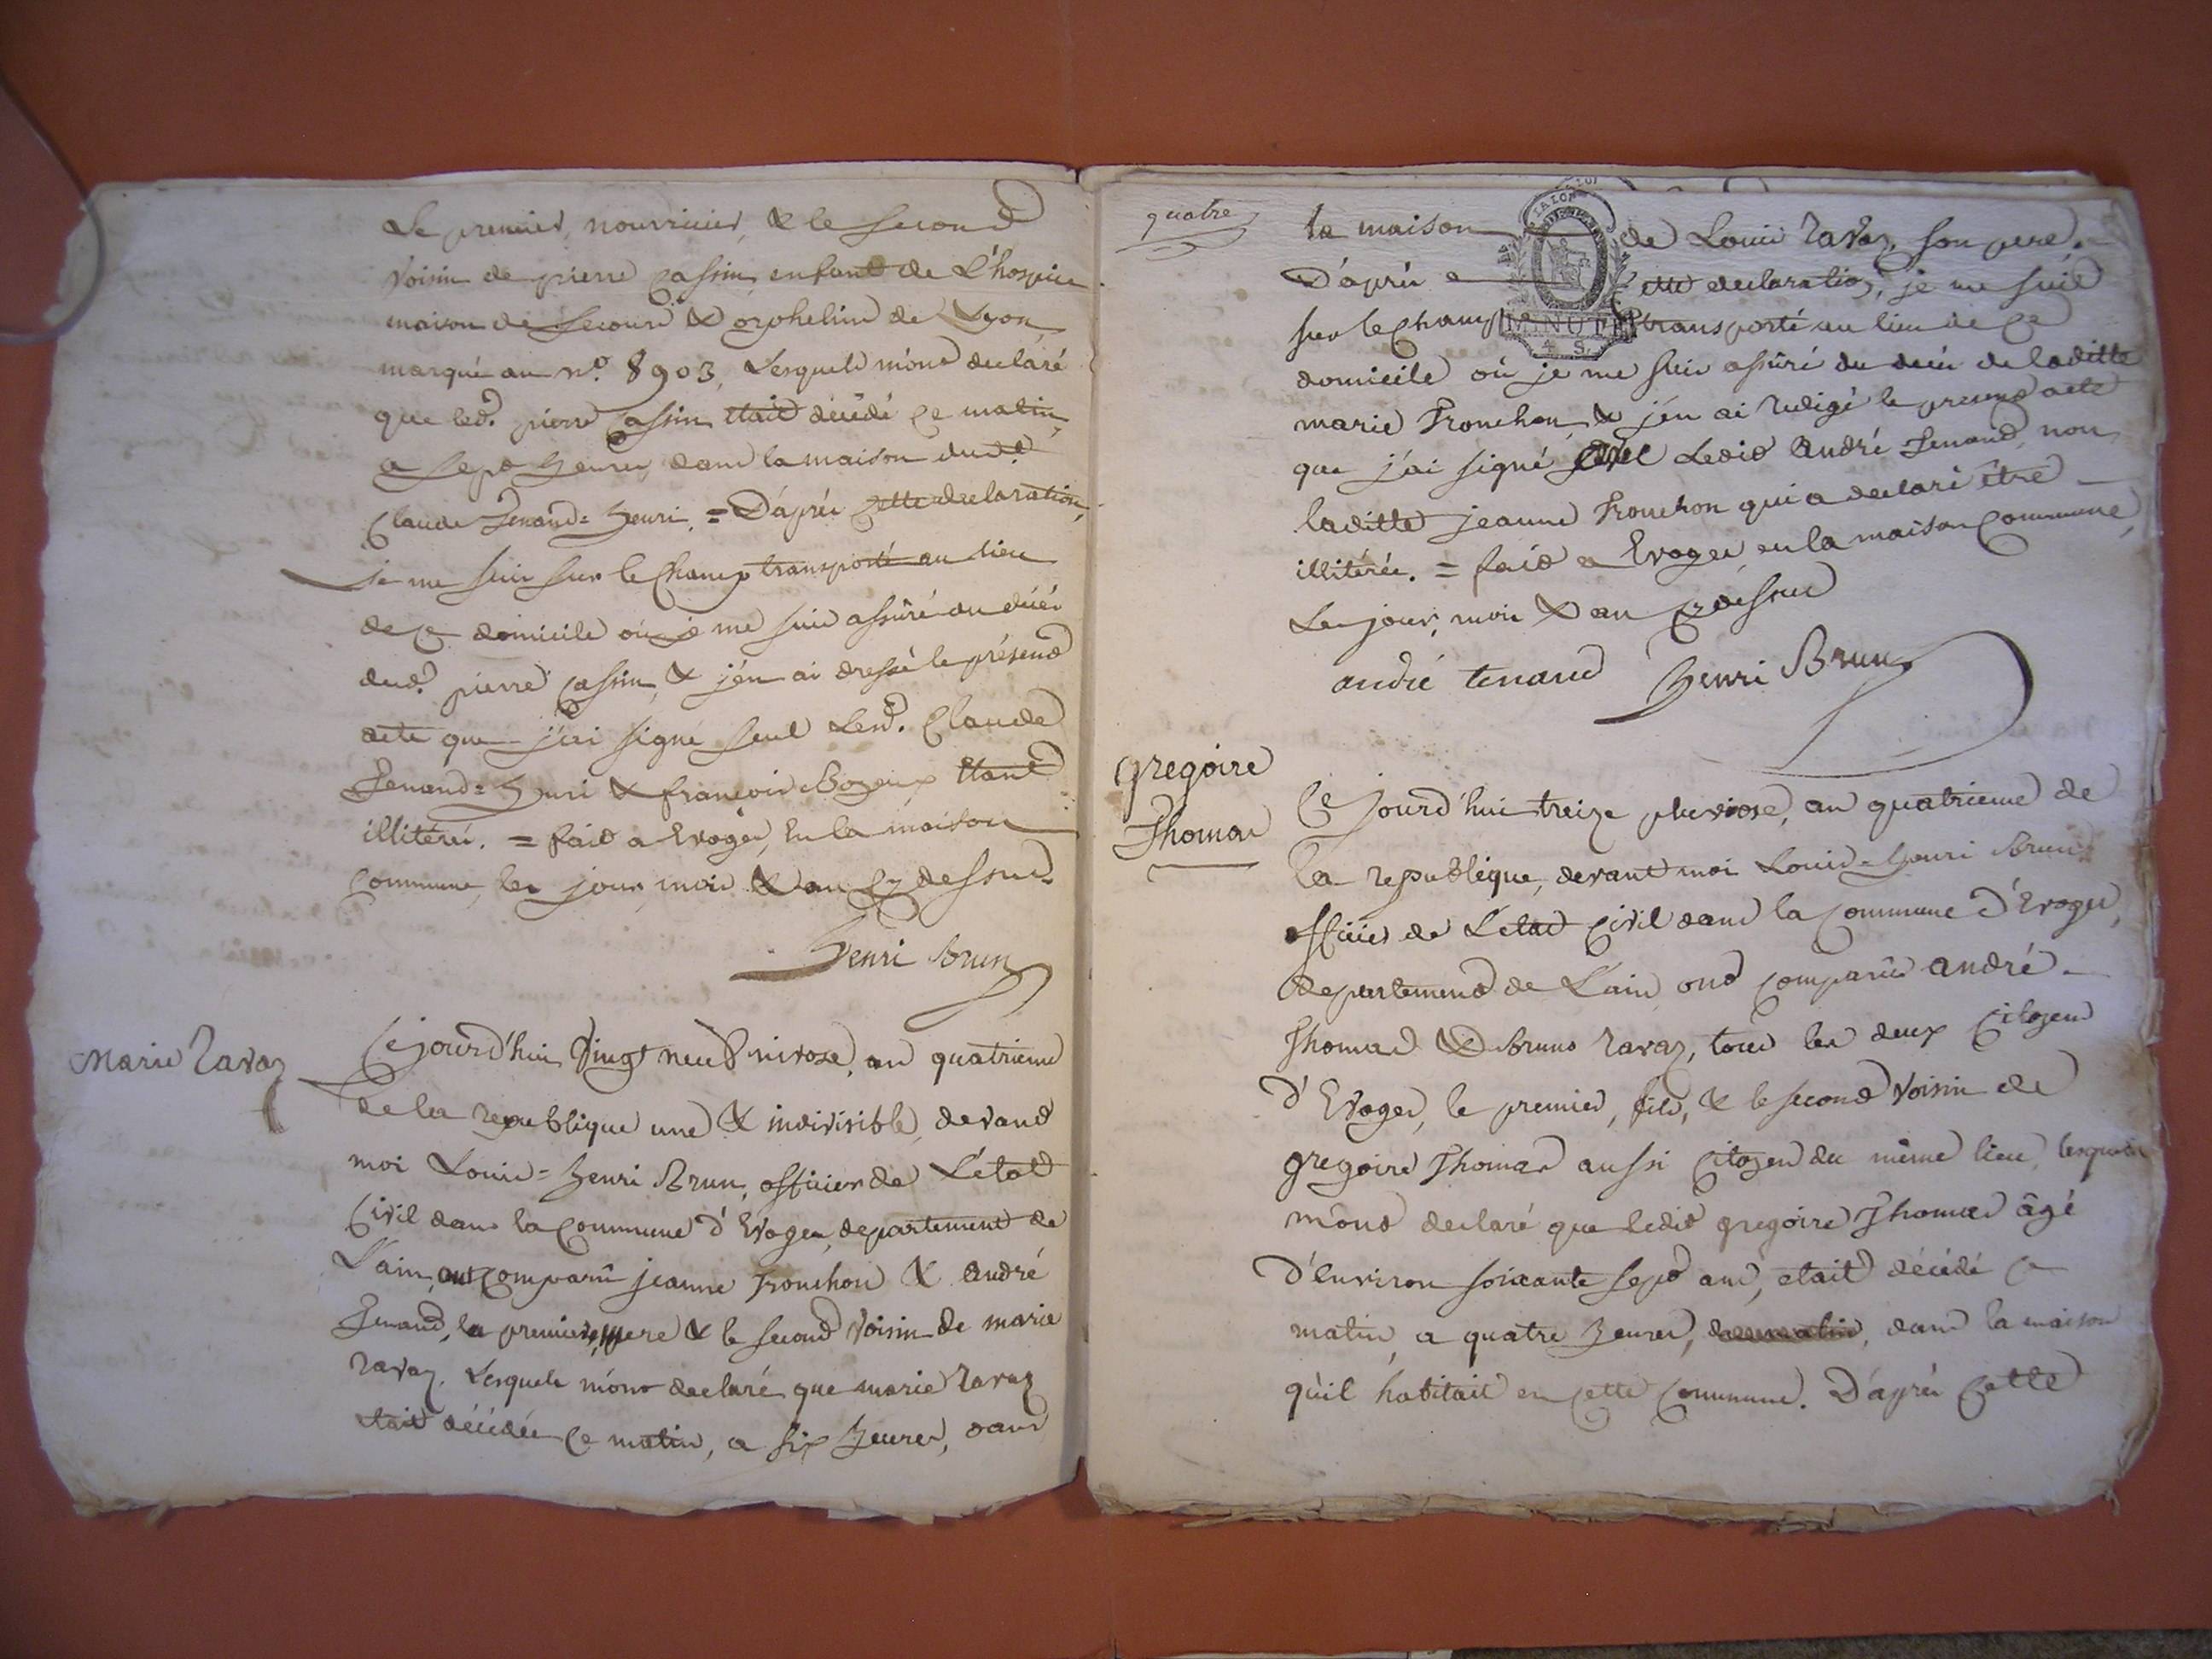 Le premier, nourricier, & le second
voisin de pierre Cassin enfant de L'hospice
maison de secours & orphelins de Lyon
marqué au n.° 8903, Lesquels m'ont declaré
que led.t pierre Cassin était décédé ce matin,
a sept heures, dans la maison dud.t
Claude Tenand=henri. = D'après cette declaration,
je me suis sur le champ transporté au lieu
de ce domicile où je me suis assûré du décés
dud.t pierre Cassin, & j'en ai dressé le présent
acte que j'ai signé seul Lesd.t Claude
Tenand=henri & françois Bozeux étant
illitérés. = fait a Evoges, en la maison
commune, les jour, mois & an cy dessus.
henri Brun
Marie Ravaz
Cejourd'hui vingt neuf nivose, an quatrieme
de la republique une & indivisible, devant
moi Louis=henri Brun, officier de L'état
Civil dans la commune d'Evoges, departement de
L'ain, ont comparû jeanne Tronchon & andré
Tenand, la premiere, mere & le second voisin de marie
ravaz. Lesquels m'ont declaré que marie ravaz
était décédée ce matin, a six heures, dans
quatre
la maison de Louis ravaz, son pere.
D'après cette declaration, je me suis
sur le champ transporté au lieu de ce
domicile où je me suis assûré du décés de laditte
marie Tronchon, & j'en ai redigé le present acte
que j'ai signé avec Ledit André Tenand, non
laditte jeanne Tronchon qui a declaré être
illitérée. = fait a Evoges en la maison commune,
Les jour, mois & an cy dessus
andré tenand henri Brun
MINUTE
4 S.
gregoire
Thomas
Ce jourd'hui treize pluviose, an quatrieme de
la republique, devant moi Louis=henri Brun
officier de L'etat Civil dans la commune d'Evoges,
departement de L'ain ont comparûs andré
Thomas & Bruno ravaz, tous les deux Citoyens
d'Evoges, le premier, fils, & le second voisin de
gregoire Thomas aussi Citoyen du même lieu, lesquels
m'ont declaré que ledit gregoire Thomas âgé
d'environ soixante sept ans, etait décédé ce
matin, a quatre heures, du matin, dans la maison
qu'il habitait en cette commune. D'après cette